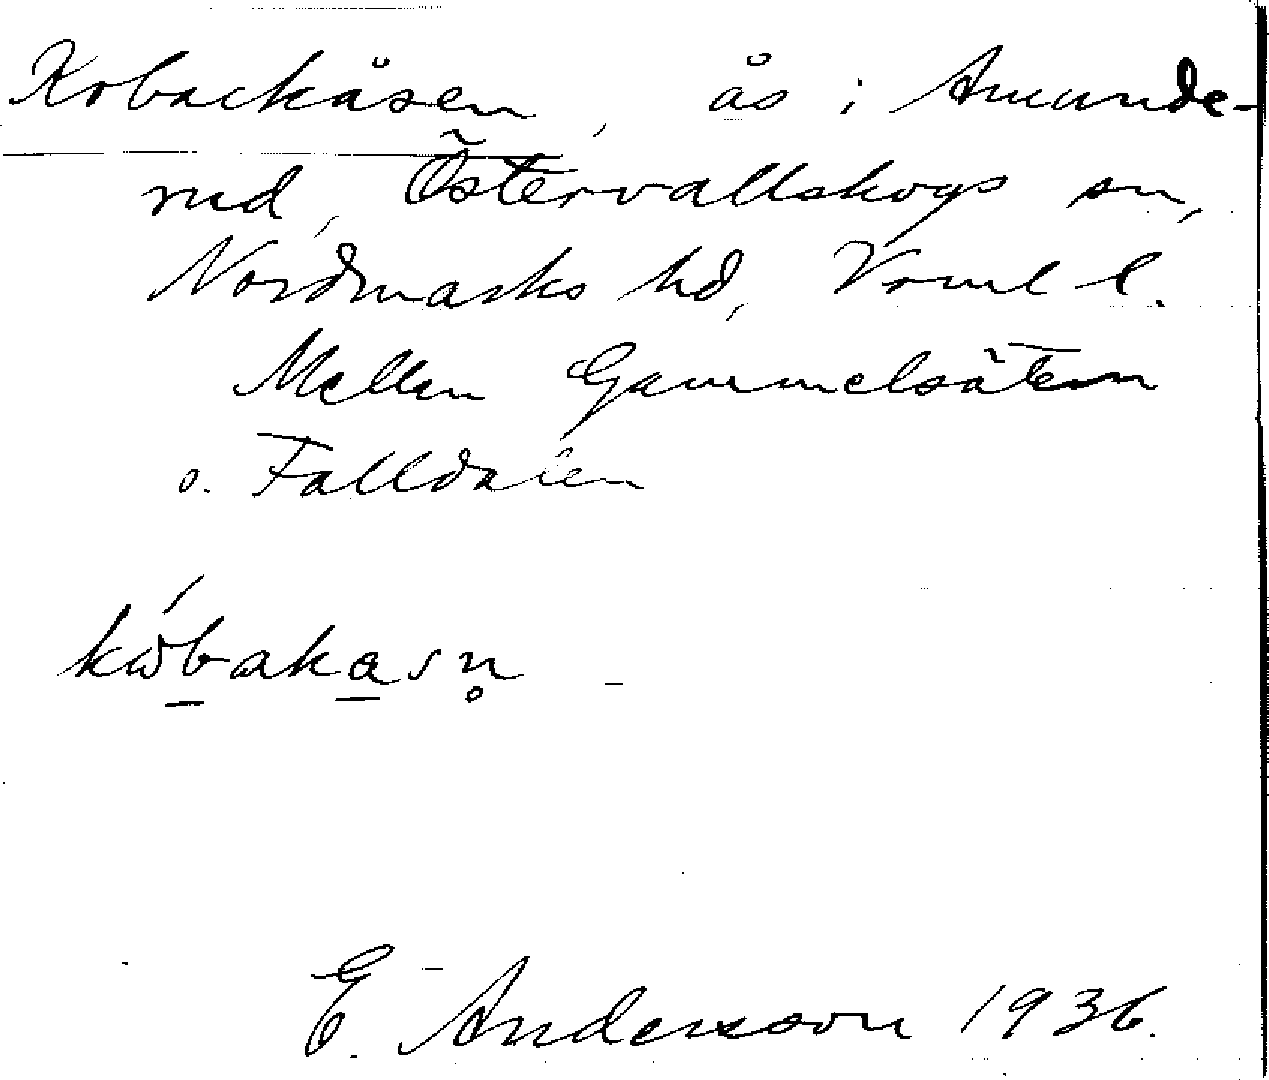 Kobackåsen, ås i Amunde-
rud, Östervallskogs sn,
Nordmarks hd, Verml l.
Mellan Gammelsätern
o. Falldalen
kωbakasn̥
E. Andersson 1936.